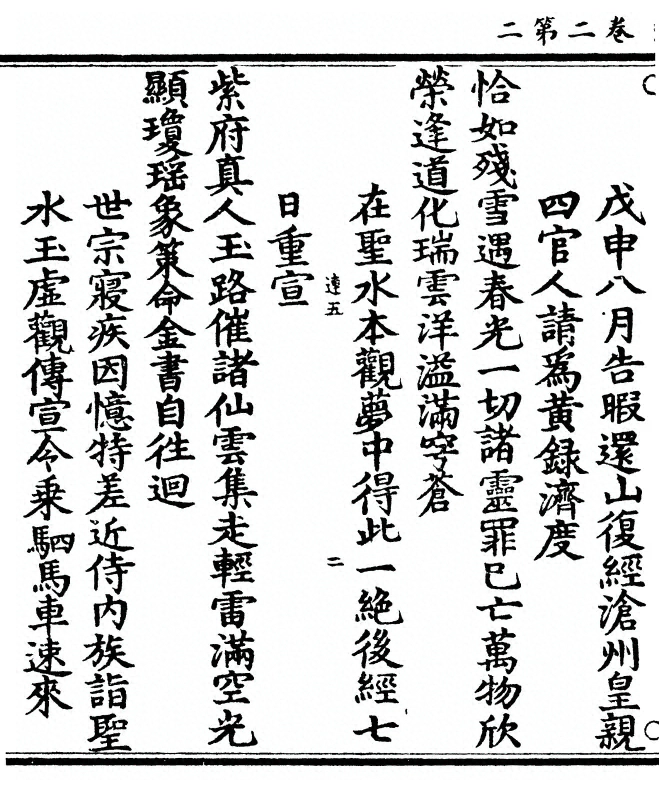 卷二第二
戊申八月告暇還山復經滄州皇親
四官人請爲黃録濟度
恰如殘雪遇春光一切諸靈罪已亡萬物欣
榮逢道化瑞雲洋溢滿穹蒼
在聖水本觀夢中得此一絶後經七
達五
二
日重宣
紫府真人玉路催諸仙雲集走輕雷滿空光
顯瓊瑶象簡命金書自徃迴
世宗寢疾因憶特差近侍内族詣聖
水玉虛觀傳宣令乘駟馬車速來